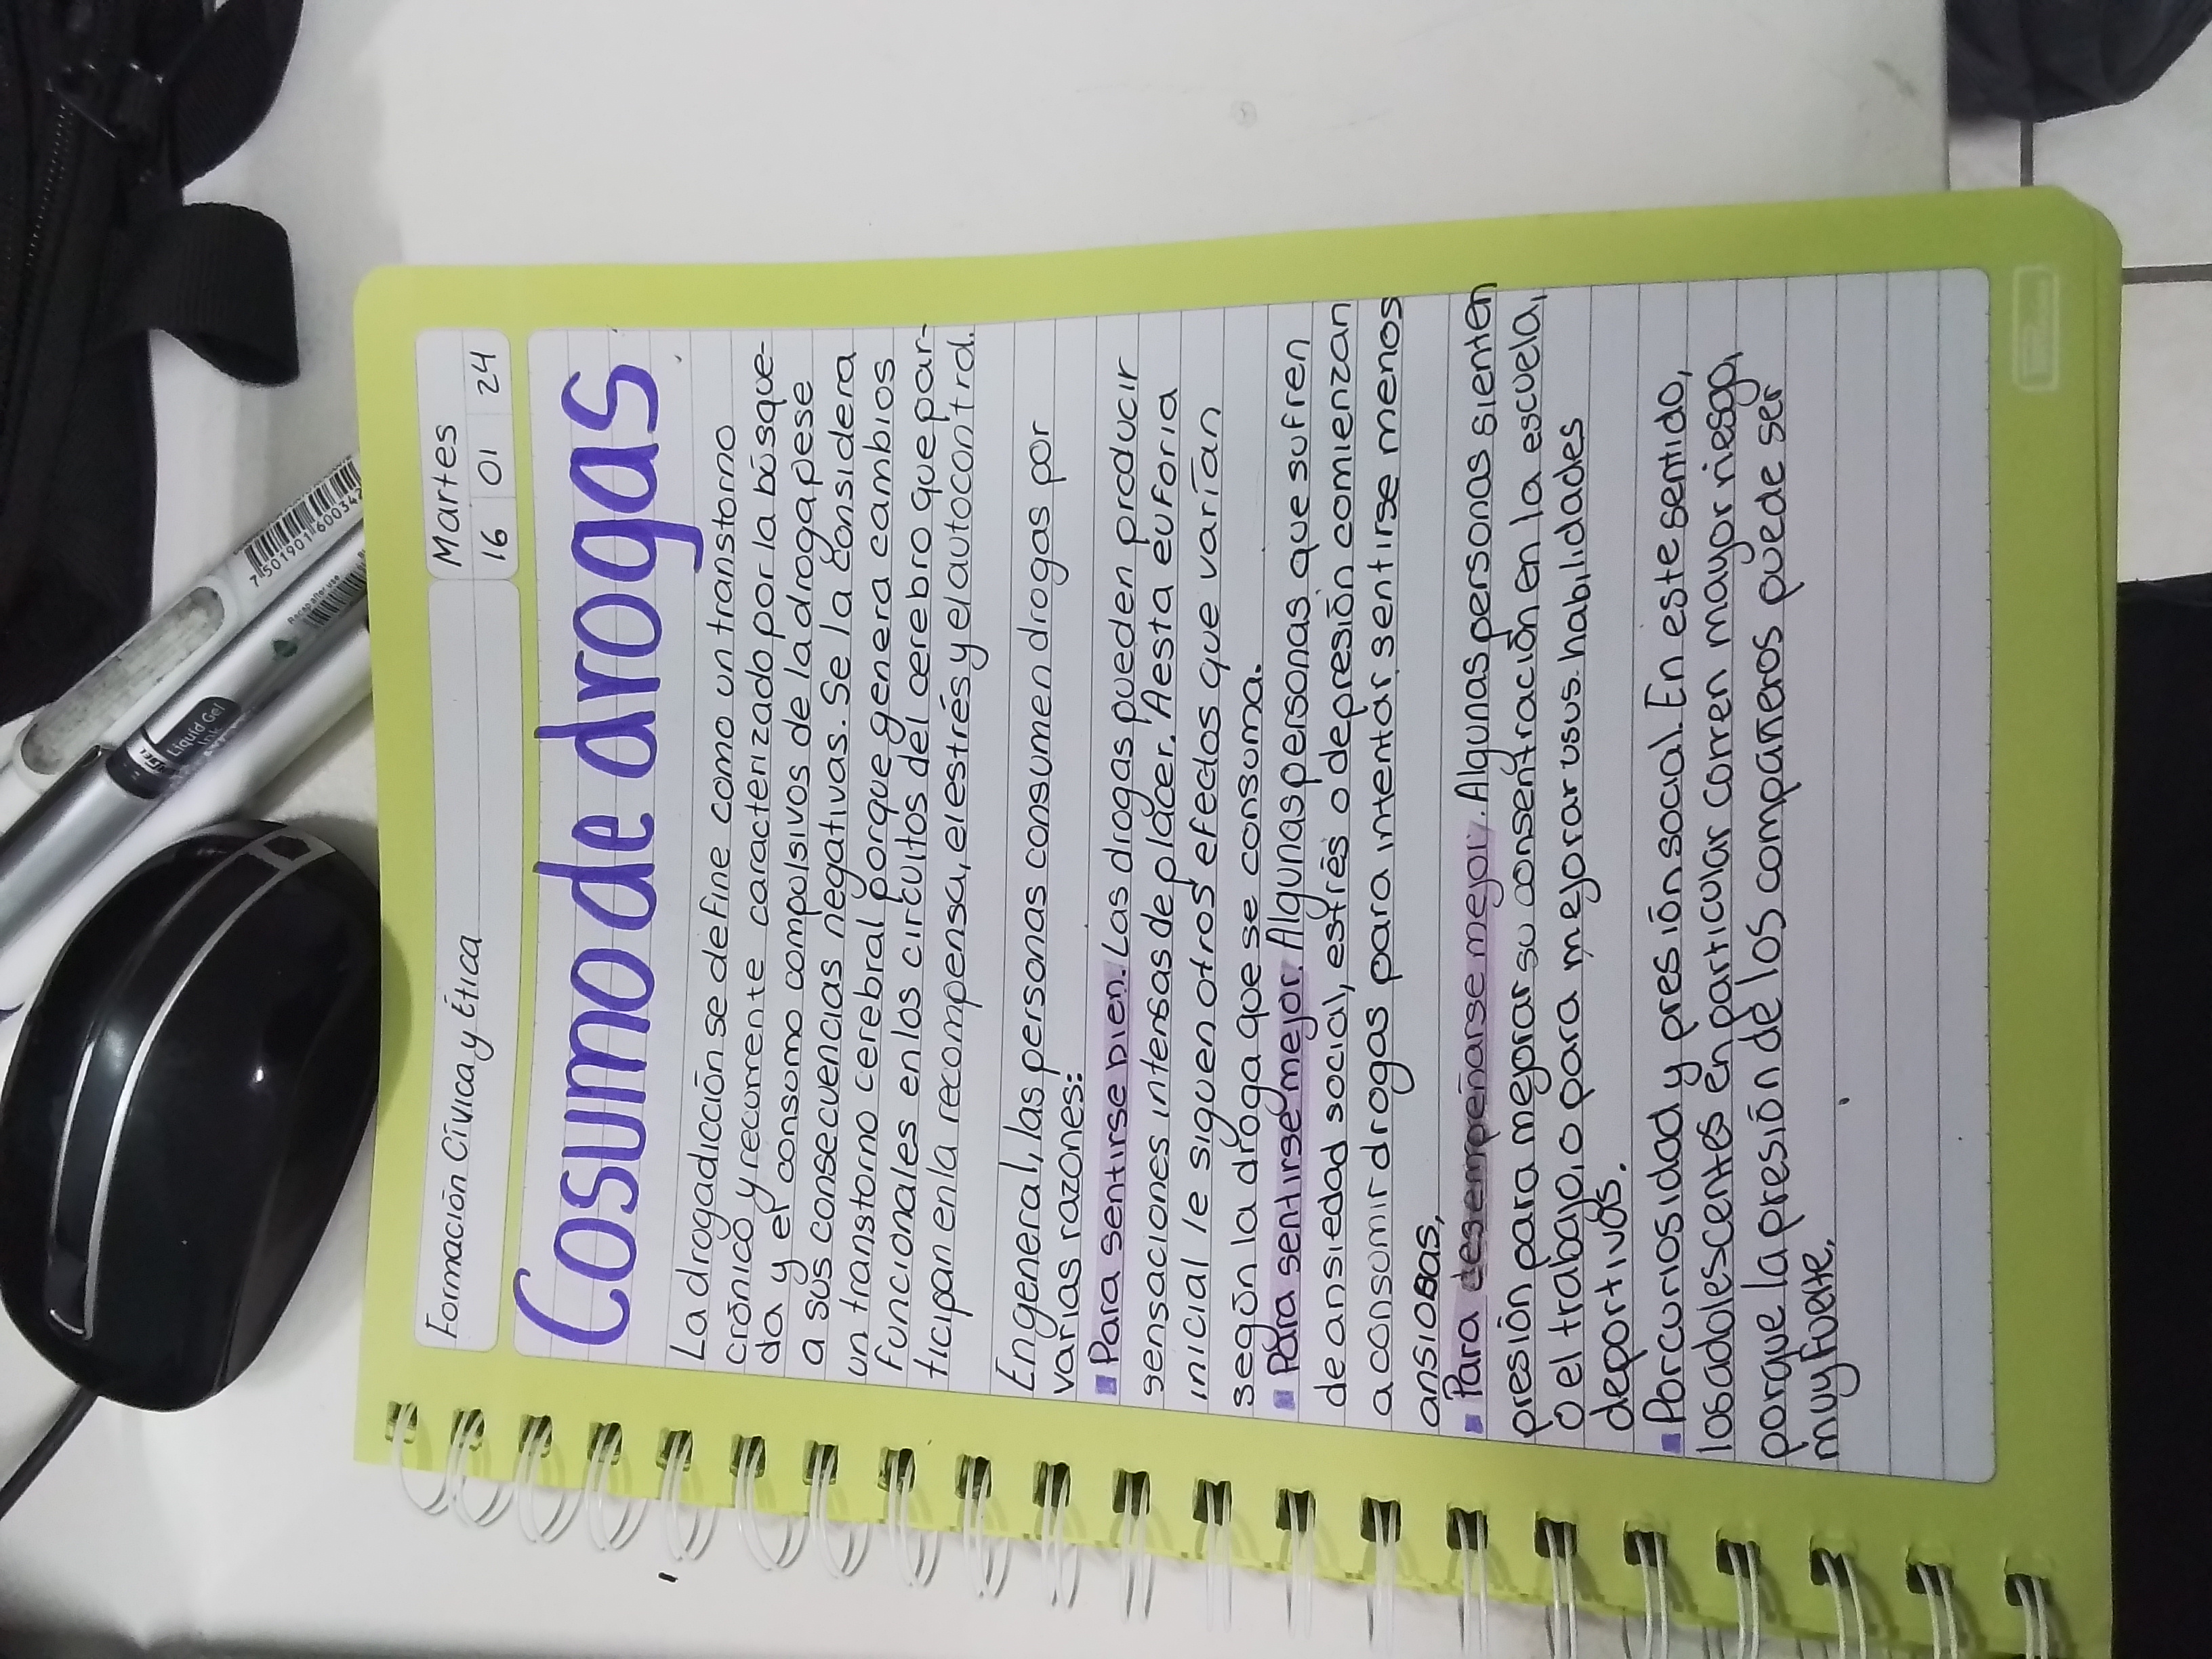 Formación Cívica y Ética
Martes
16 01 24
Cosumo de drogas
La drogadicción se define como un transtorno
crónico y recurrente caracterizado por la búsque-
da y el consumo compulsivos de la droga pese
a sus consecuencias negativas. Se la considera
un transtorno cerebral porque genera cambios
funcionales en los circuitos del cerebro que par-
ticipan en la recompensa, el estrés y el autocontrol.
En general, las personas consumen drogas por
varias razones:
Para sentirse bien. Las drogas pueden producir
sensaciones intensas de placer. A esta euforia
inicial le siguen otros efectos que varían
según la droga que se consuma.
Para sentirse mejor. Algunas personas que sufren
de ansiedad social, estrés o depresión comienzan
a consumir drogas para intentar sentirse menos
ansiosas.
Para desempeñarse mejor. Algunas personas sienten
presión para mejorar su consentración en la escuela,
o el trabajo, o para mejorar usus habilidades
deportivas.
Por curiosidad y presión social. En este sentido,
los adolescentes en particular corren mayor riesgo,
porque la presión de los compañeros puede ser
muy fuerte.
7 501901 60034
Recap after use
Liquid Gel
Ink